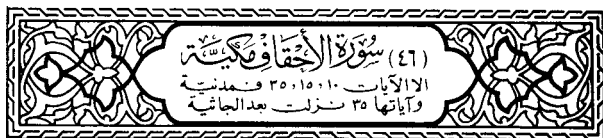 (٤٦) سُورَةُ الأحْقافِ مَكيّة
الا الآيات ١٠، ١٥، ٣٥ فمدنيّة
وآياتها ٣٥ نزلت بعد الجاثية